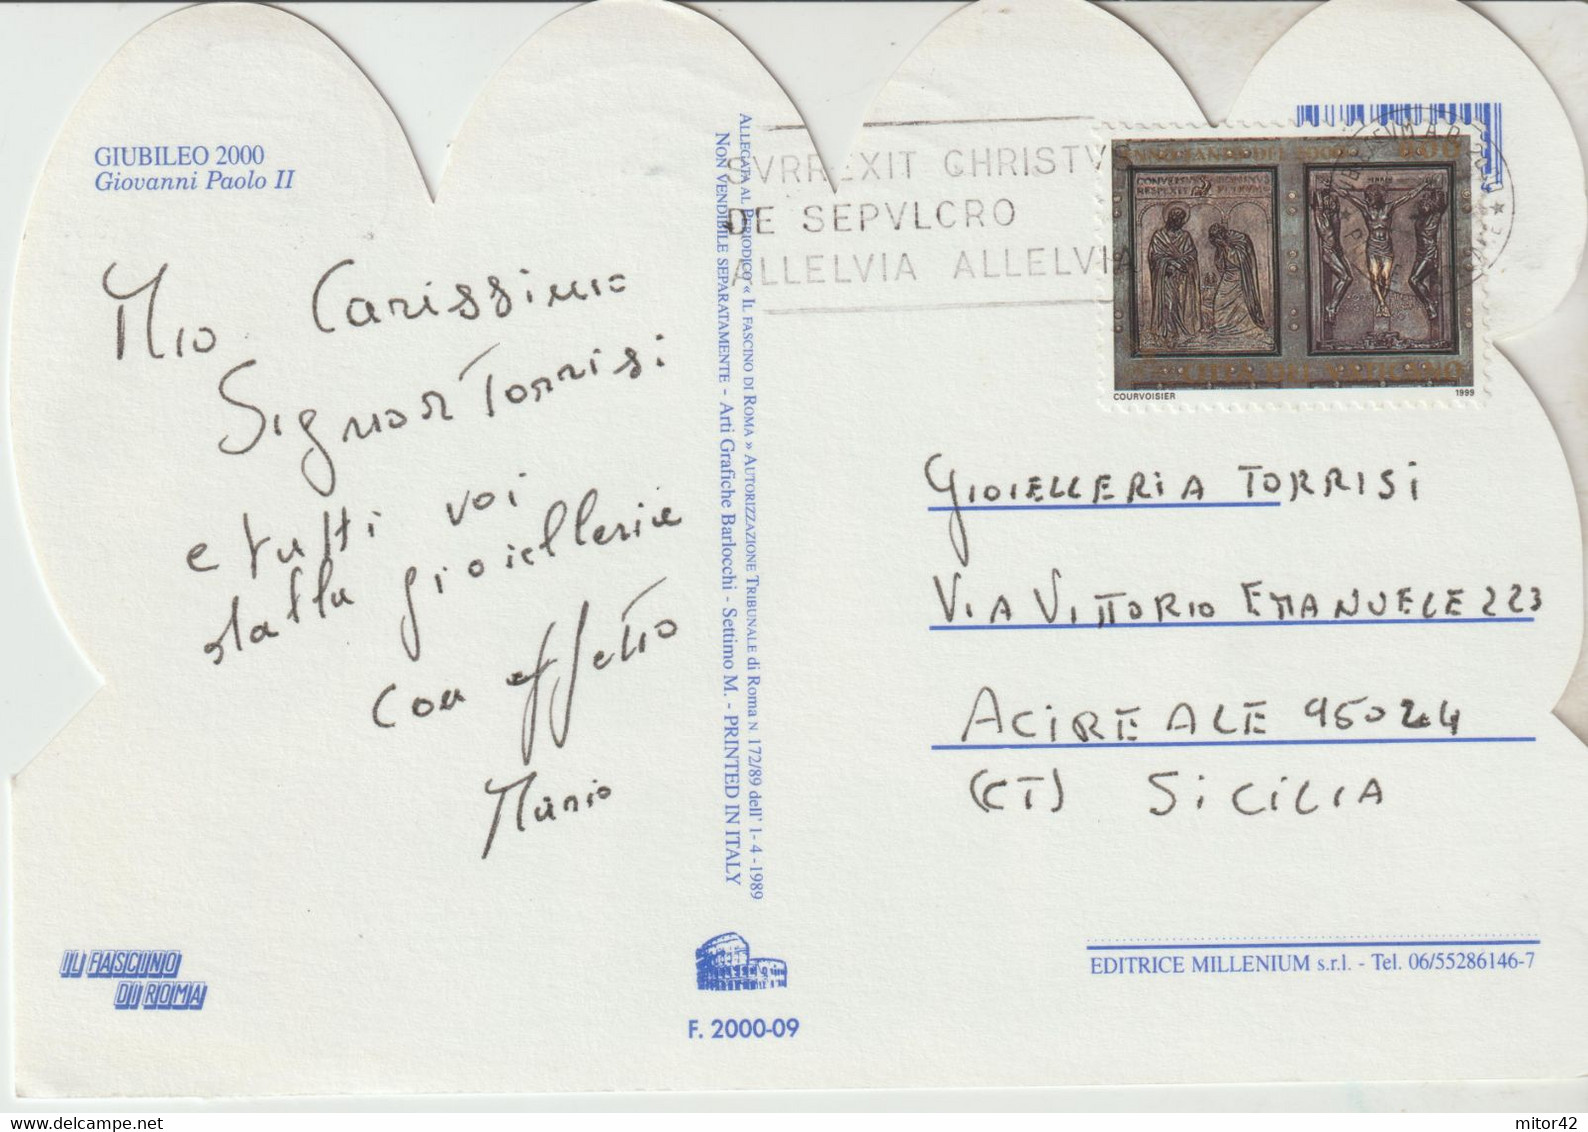 GIUBILEO 2000
Giovanni Paolo II
Mio Carissimo
Signor Torrisi
e tutti voi
della gioielleria
con affetto
Mario
IL FASCINO
DI ROMA
ALLEGATA AL PERIODICO « IL FASCINO DI ROMA » AUTORIZZAZIONE TRIBUNALE di ROMA N 172/89 dell' 1- 4 -1989
NON VENDIBILE SEPARATAMENTE - Arti Grafiche Barlocchi - Settimo M. - PRINTED IN ITALY
F. 2000-09
SVRREXIT CHRISTV
DE SEPVLCRO
ALLELVIA ALLELVIA
COURVOISIER 1999
GIOIELLERIA TORRISI
VIA VITTORIO EMANUELE 223
ACIREALE 95024
(CT) SICILIA
EDITRICE MILLENIUM s.r.l. - Tel. 06/55286146-7
mitor42